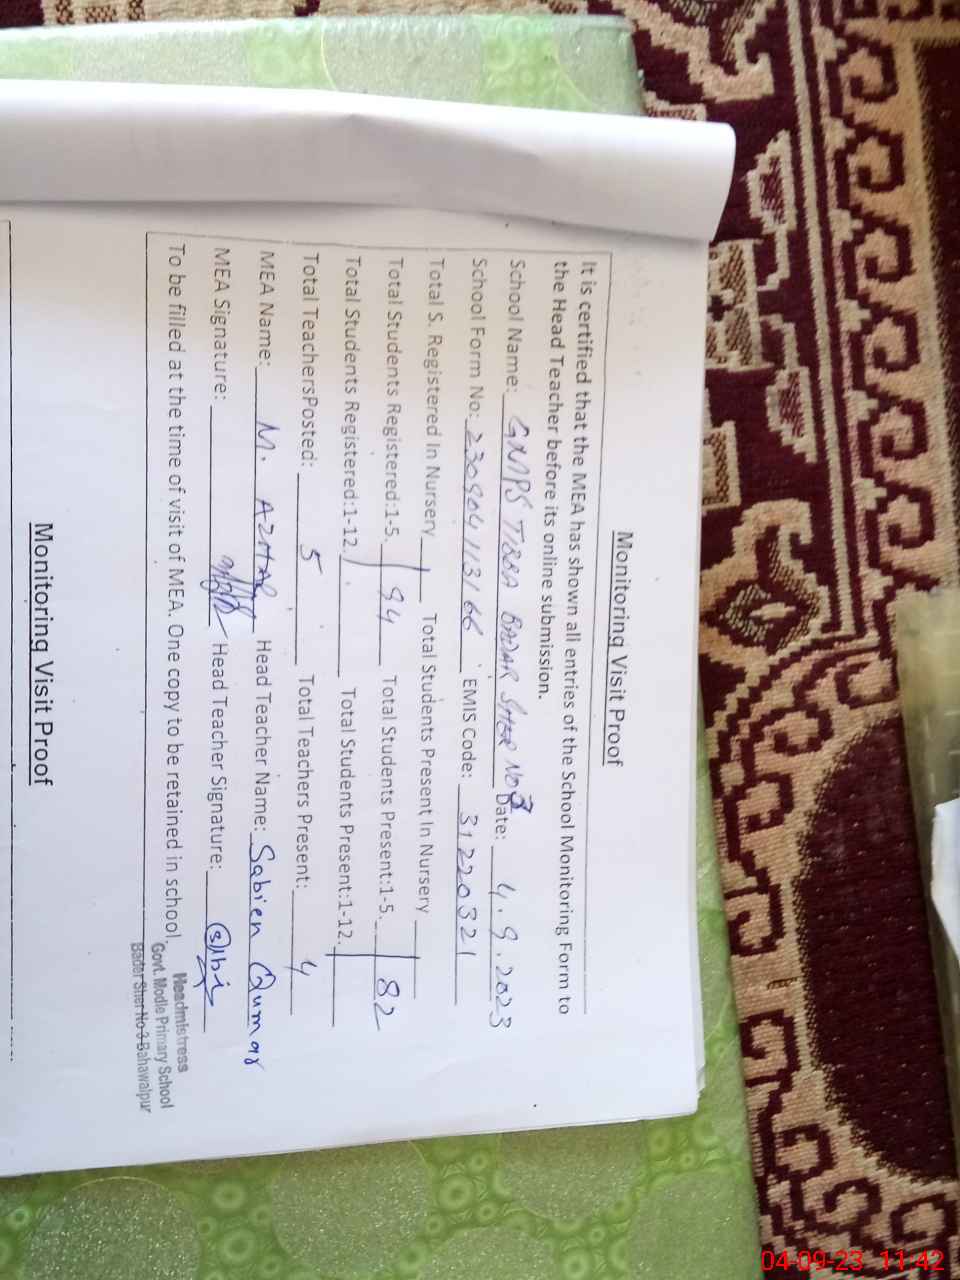 Monitoring Visit Proof
It is certified that the MEA has shown all entries of the School Monitoring Form to
the Head Teacher before its online submission.
School Name: GMPS TIBBA BADAR SHER NO 3 Date: 4.9.2023
School Form No: 230904113166 EMIS Code: 31220321
Total S. Registered In Nursery Total Students Present In Nursery
Total Students Registered:1-5. 94 Total Students Present:1-5. 82
Total Students Registered:1-12. Total Students Present:1-12.
Total TeachersPosted: 5 Total Teachers Present: 4
MEA Name: M. AZHAR Head Teacher Name: Sabien Qumar
MEA Signature: Head Teacher Signature:
To be filled at the time of visit of MEA. One copy to be retained in school.
Headmistress
Govt. Modle Primary School
Bader Sher No 3 Bahawalpur
Monitoring Visit Proof
04-09-23 11:42